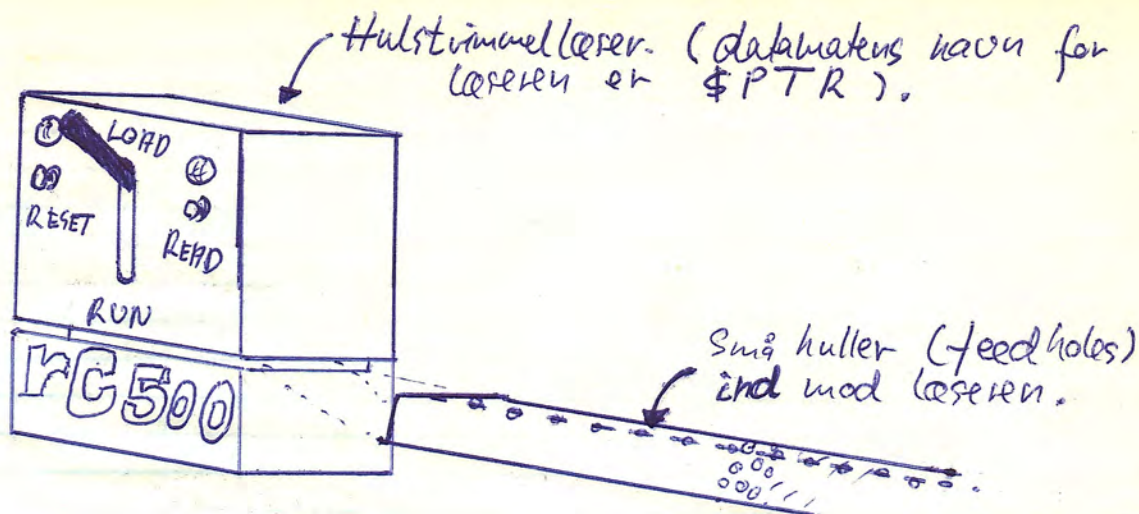 Hulstrimmellæser. (datamatens navn for
læseren er $PTR).
LOAD
RESET
READ
RUN
rC500
Små huller (feedholes)
ind mod læseren.